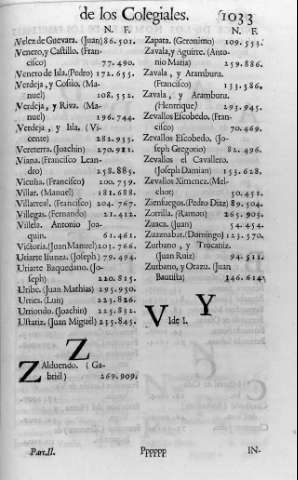 de los Colegiales. 1033
N. F.
Velez de Guevara. (Juan) 86. 501.
Venero, y Castillo. (Fran-
cisco) 77. 490.
Venero de Isla. (Pedro) 172. 655.
Verdeja, y Cossio. (Ma-
nuel) 108. 552.
Verdeja, y Riva. (Ma-
nuel) 196. 744.
Verdeja, y Isla. (Vi-
cente) 282. 935.
Vereterra. (Joachin) 270. 911.
Viana. (Francisco Lean-
dro) 258. 885.
Vicuña. (Francisco) 200. 759.
Villar. (Manuel) 181. 688.
Villarreal. (Francisco) 204. 767.
Villegas. (Fernando) 21. 412.
Villela. Antonio Joa-
quin. 61. 461.
Victoria. (Juan Manuel) 203. 766.
Uriarte Isunza. (Joseph) 79. 494.
Uriarte Baquedano. (Jo-
seph) 220. 825.
Uribe. (Juan Mathias) 295. 950.
Urries. (Luis) 223. 826.
Urtiondo. (Joachin) 225. 832.
Ustariz. (Juan Miguel) 235. 845.
Z
Zaldoendo. (Ga-
briel) 269. 909.
N. F.
Zapata. (Geronimo) 109. 553.
Zavala, y Aguirre. (Anto-
nio Maria) 259. 886.
Zavala, y Aramburu.
(Francisco) 133. 586.
Zavala, y Aramburu.
(Henrrique) 295. 945.
Zevallos Escobedo. (Fran-
cisco) 70. 469.
Zevallos Escobedo. (Jo-
seph Gregorio) 82. 496.
Zevallos el Cavallero.
(Joseph Damian) 153. 628.
Zevallos Ximenez. (Mel-
chor) 50. 451.
Zienfuegos. (Pedro Diaz) 89. 504.
Zorrilla. (Ramon) 265. 905.
Zuaca. (Juan) 54. 454.
Zuaznabar. (Domingo) 123. 570.
Zurbano, y Trucania.
(Juan Ruiz) 94. 511.
Zurbano, y Otazu. (Juan
Bautista) 146. 614.
Y
Vide I.
Part. II. Pppppp IN-